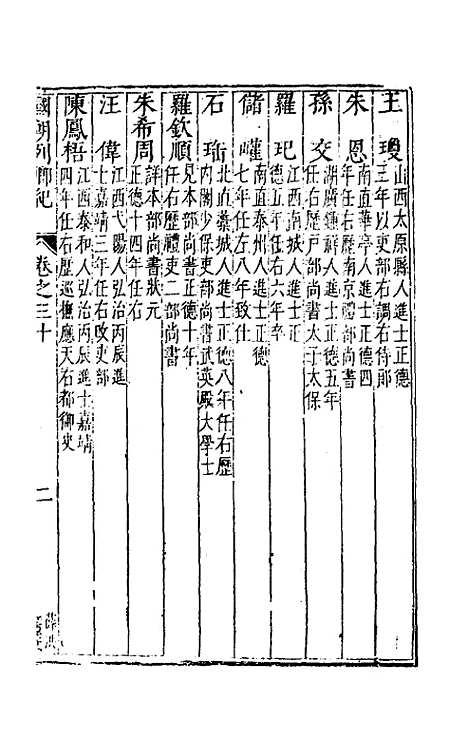 王瓊 山西太原縣人進士正德
三年以吏部右調右侍郎
朱恩 南直華亭人進士正德四
年任右歷南京禮部尚書
孫交 湖廣鍾祥人進士正德五年
任右歷戶部尚書太子太保
羅玘 江西南城人進士正
德五年任右六年卒
儲巏 南直泰州人進士正德
七年任左八年致仕
石珤 北直藁城人進士正德八年任右歷
內閣少保吏部尚書武英殿大學士
羅欽順 見本部尚書正德十年
任右歷禮吏二部尚書
朱希周 詳本部尚書狀元
正德十四年任右
汪偉 江西弋陽人弘治丙辰進
士嘉靖三年任右改吏部
陳鳳梧 江西泰和人弘治丙辰進士嘉靖
四年任右歷巡撫應天右都御史
國朝列卿紀 卷之三十 二